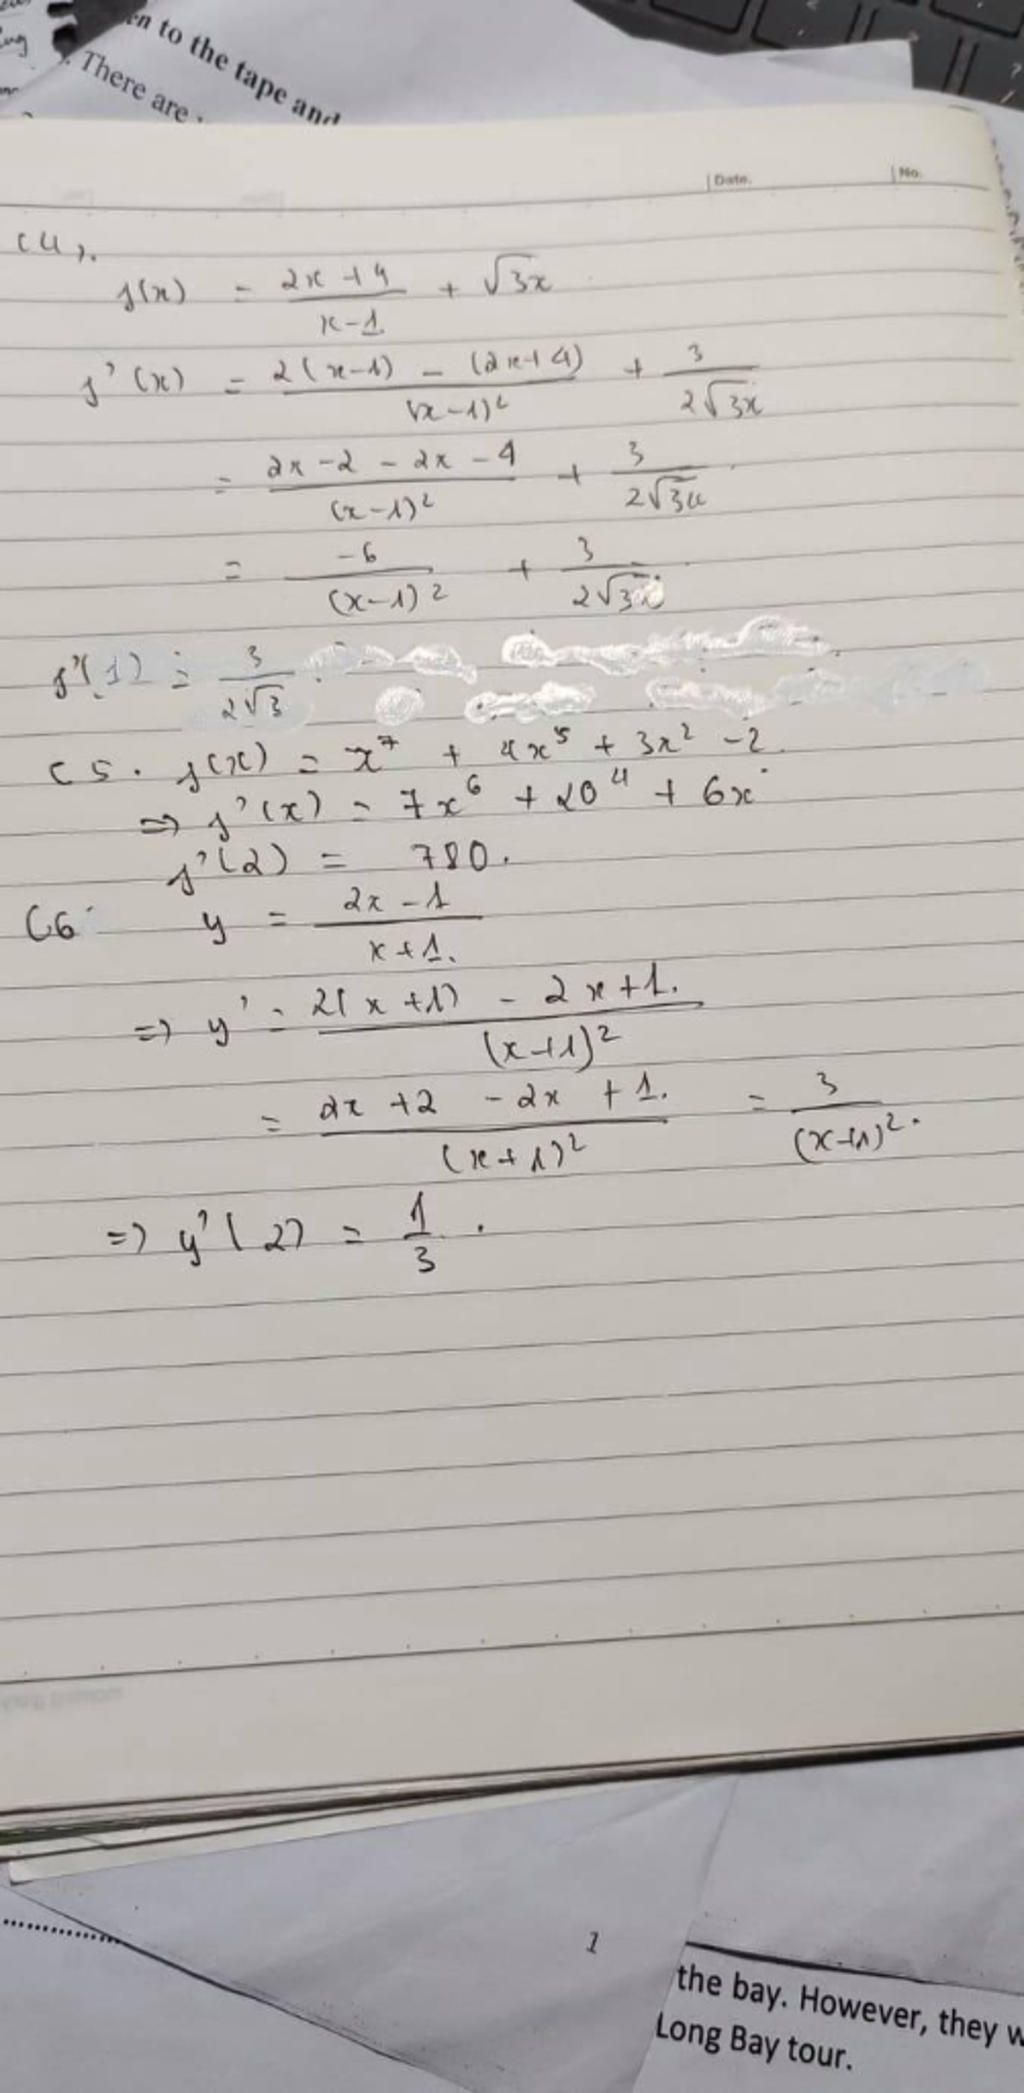 en to the tape and
There are
Date.
No.
C4).
f(x) = \frac{2x+4}{x-1} + \sqrt{3x}
f'(x) = \frac{2(x-1) - (2x+4)}{(x-1)^2} + \frac{3}{2\sqrt{3x}}
= \frac{2x-2-2x-4}{(x-1)^2} + \frac{3}{2\sqrt{3x}}
= \frac{-6}{(x-1)^2} + \frac{3}{2\sqrt{3x}}
f'(1) = \frac{3}{2\sqrt{3}}
C5. f(x) = x^7 + 4x^5 + 3x^2 - 2.
=> f'(x) = 7x^6 + 20^4 + 6x
f'(2) = 780.
C6 y = \frac{2x-1}{x+1.}
=> y' = \frac{2(x+1) - 2x+1.}{(x+1)^2}
= \frac{2x+2-2x+1.}{(x+1)^2} = \frac{3}{(x+1)^2}.
=> y'(2) = \frac{1}{3}.
1
the bay. However, they w
Long Bay tour.